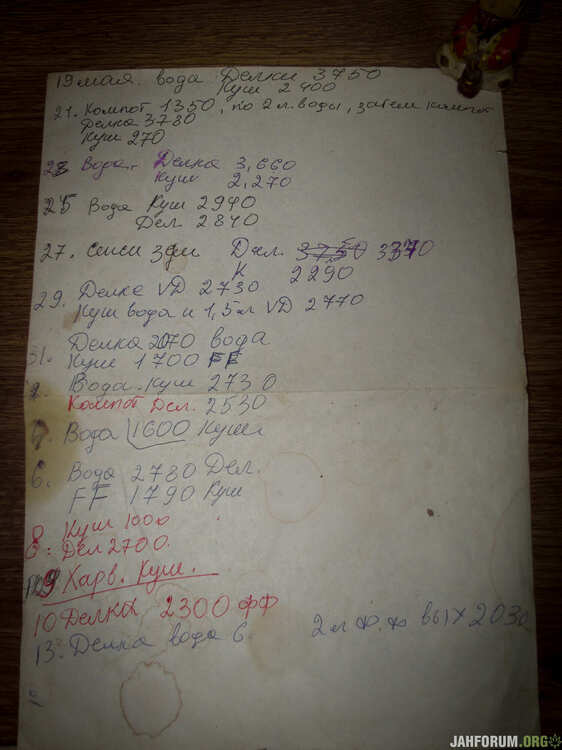 19 мая. вода Делки 3750
Куш 2400
21. Компот 1350, по 2 л. воды, затем компот
Делка 3780
Куш 270
23 Вода, Делка 3,660
Куш 2,270
25 Вода Куш 2940
Дел. 2840
27. Сенси 3 дм Дел. 3750 3370
К 2290
29. Делка VD 2730
Куш вода и 1,5 л VD 2770
31. Делка 2070 вода
Куш 1700 FF
Вода. Куш 2730
Компот Дел. 2530
Вода 1600 Куш
6. Вода 2780 Дел.
FF 1790 Куш
8 Куш 1000
8. Дел 2700.
9 Харв. Куш.
10 Делка 2300 фф
13. Делка вода 6. 2 л ф.ф вых 2030
JAHFORUM.ORG